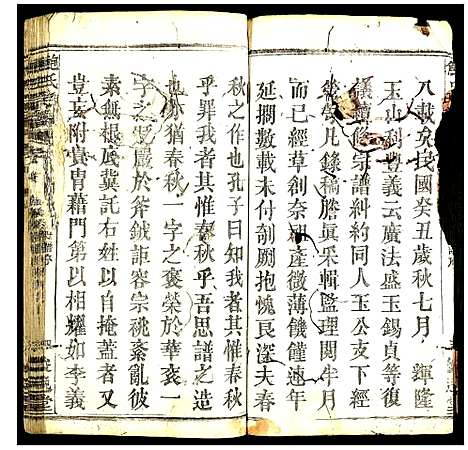 八載矣民國癸丑歲秋七月輝隆
玉山利豐義云廣法盛玉錫貞等復
議續修宗譜糾約同人玉公支下經
凡錄稿謄真采輯監理閱半月
而已經草創奈祀產微薄饑饉連年
延擱數載未付剞劂抱愧良深夫春
秋之作也孔子曰知我者其惟春秋
乎罪我者其惟春秋乎吾思譜之造
也亦猶春秋一字之褒榮於華袞一
字之貶嚴於斧鉞詎容宗祧紊亂彼
素無根底冀託右姓以自掩蓋者又
豈妄附貴胄藉門第以相耀如李義